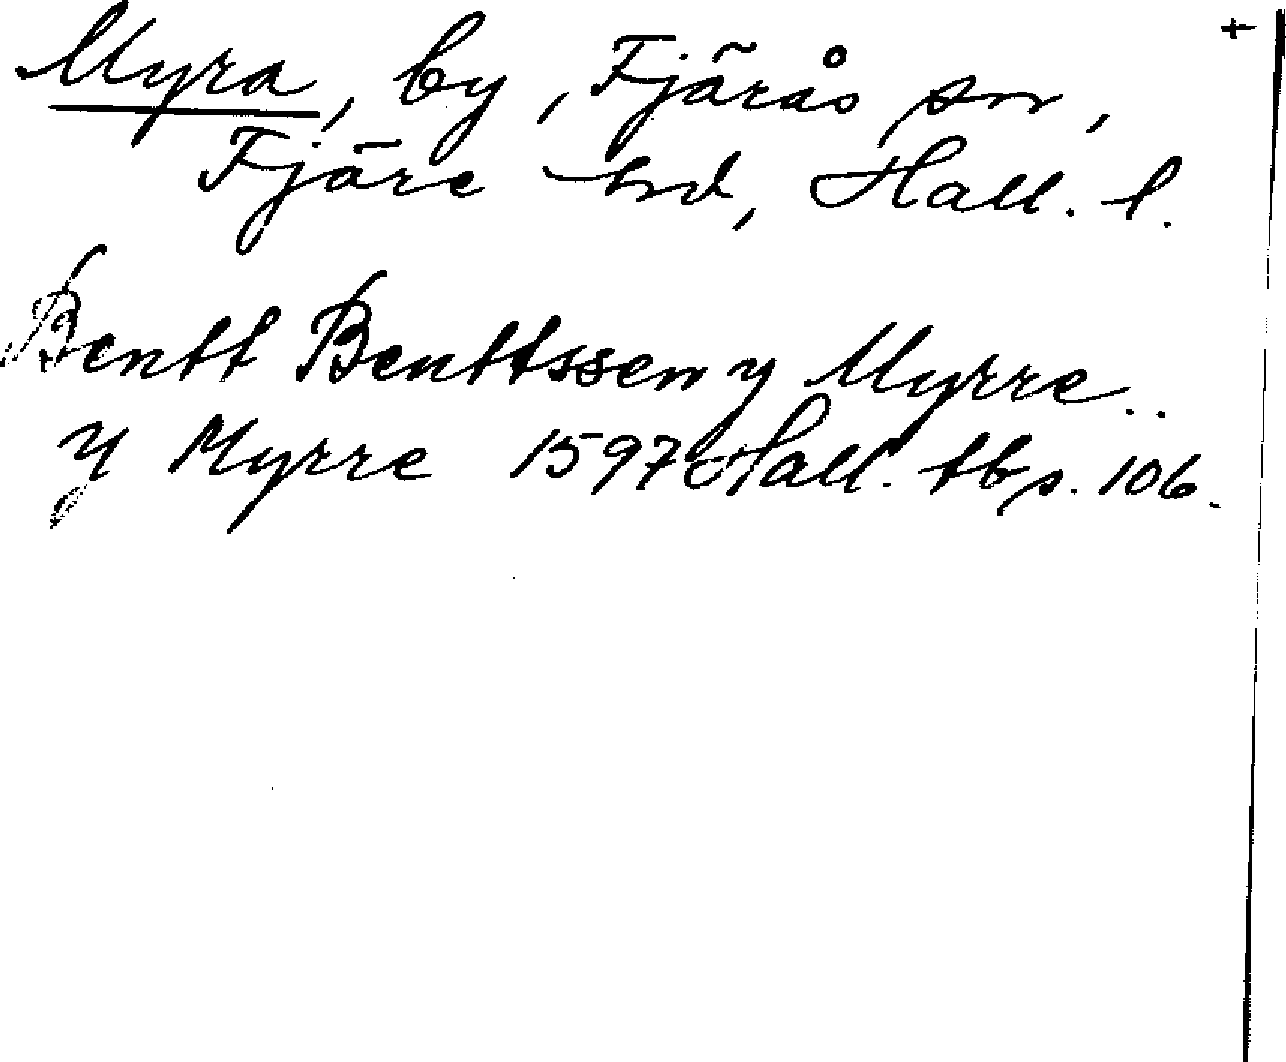 Myra, by, Fjärås sn, +
Fjäre hd, Hall. l.
Bentt Benttssen y Myrre..
y Myrre 1597 Hall. tb s. 106.